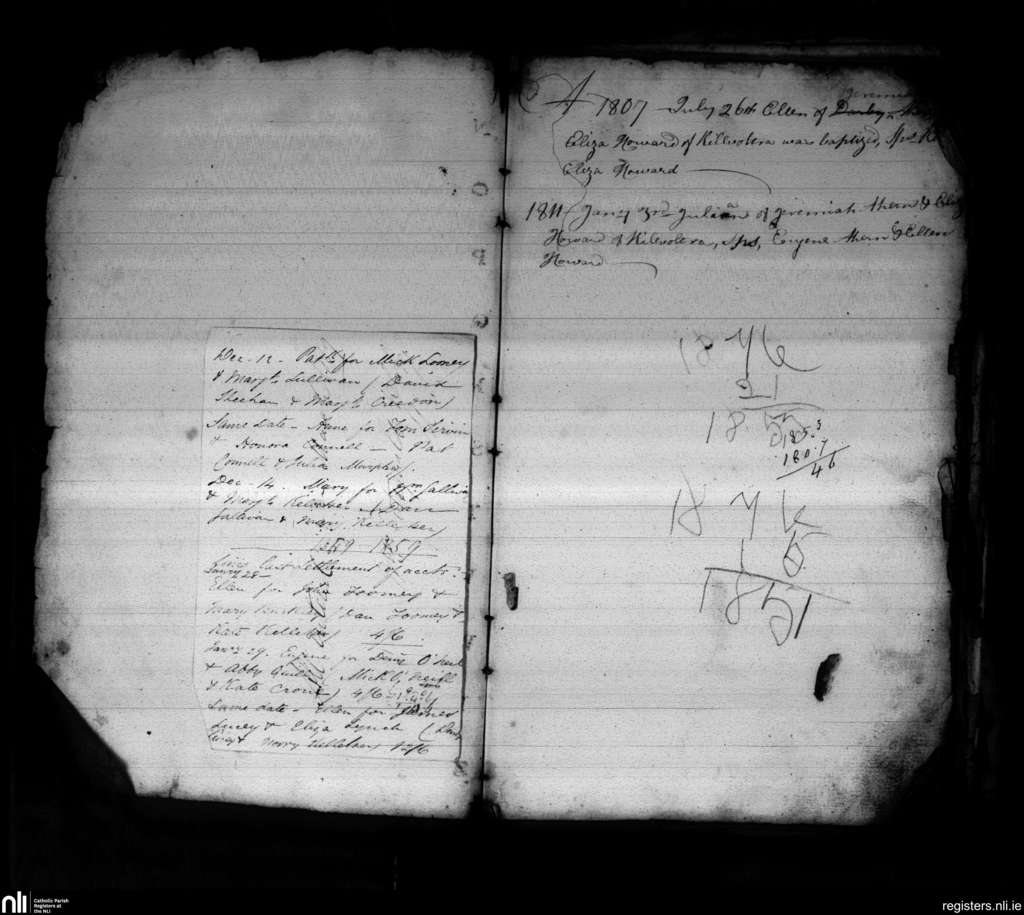 Dec. 12 - Patk. for Mick Looney
& Margt. Sullivan (David
Sheehan & Margt. Creedon)
Same date - Anne for Tom
& Honora Connell - Pat
Connell & Julia Murphy.
Dec. 14. Mary for Wm. Sullivan
& Margt. Kelleher (Dan
Sullivan & Mary Kelleher)
1859 1859
Since last settlement of accts.
Ellen for John Toomey &
Mary (Dan Toomey &
Kate Kelleher) 4/6
Jany. 29. Eugene for O'Neill
& Abby Mick O'Neill
& Kate Crone) 4/6
Same date - Ellen for James
Lucey & Eliza Lynch (
Lucey & Norry Kelleher) 2/6
1807 - July 26th Ellen of Darby Jeremiah
Eliza Howard of Killvolera was baptized, Sps
Eliza Howard
1811 - Jany 3rd Julian of Jeremiah Ahern & Eliz
Howard of Kilvolera, Sps, Eugene Ahern & Ellen
Howard
1876
21
1855
185.3
180.7
46
1876
1851
nli
Catholic Parish
Registers at
the NLI
registers.nli.ie